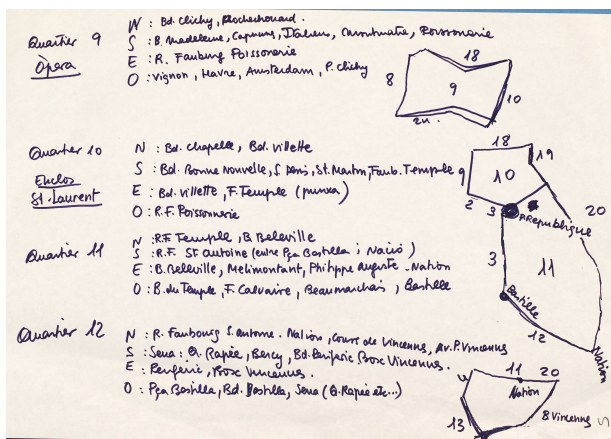 Quartier 9
Opera
N : Bd. Clichy, Rochechouard.
S : B. Madeleine, Capucines, Italiens, Montmatre, Poissonerie
E : R. Fauburg Poissonerie
O : Vignon, Havre, Amsterdam, P. Clichy
18
8
9
10
Quartier 10
Enclos
St. Laurent
N : Bd. Chapelle, Bd. Villette
S : Bd. Bonne Nouvelle, S. Denis, St. Martin, Faub. Temple
E : Bd. Villette, F. Temple (punxa)
O : R.F. Poissonnerie
18
19
9
10
2
3
20
République
Quartier 11
N : R.F. Temple, B. Belleville
S : R.F. St Antoine (entre Pça Bastilla i Nació)
E : B. Belleville, Melimontant, Philippe Auguste - Nation
O : B. du Temple, F. Calvaire, Beaumarchais, Bastille
3
11
Bastille
12
Nation
Quartier 12
N : R. Faubourg S. Antonne. Nation, Cours de Vincennes, Av. P. Vincennes
S : Sena : Q. Rapée, Bercy, Bd. Periferic Bosc Vincennes.
E : Periferic, Bosc Vincennes.
O : Pça Bastilla, Bd. Bastilla, Sena (Q. Rapée etc...)
4
11
20
Nation
B Vincenns
13